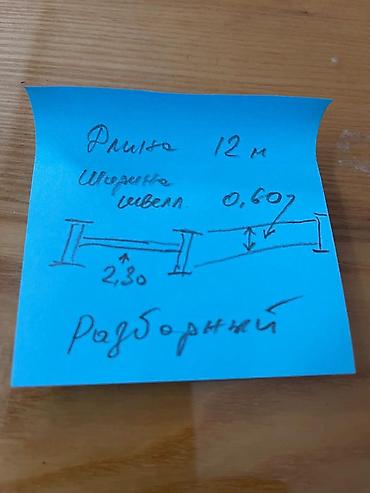 Длина 12 м
Ширина
швелл 0,60
2,30
Разборный